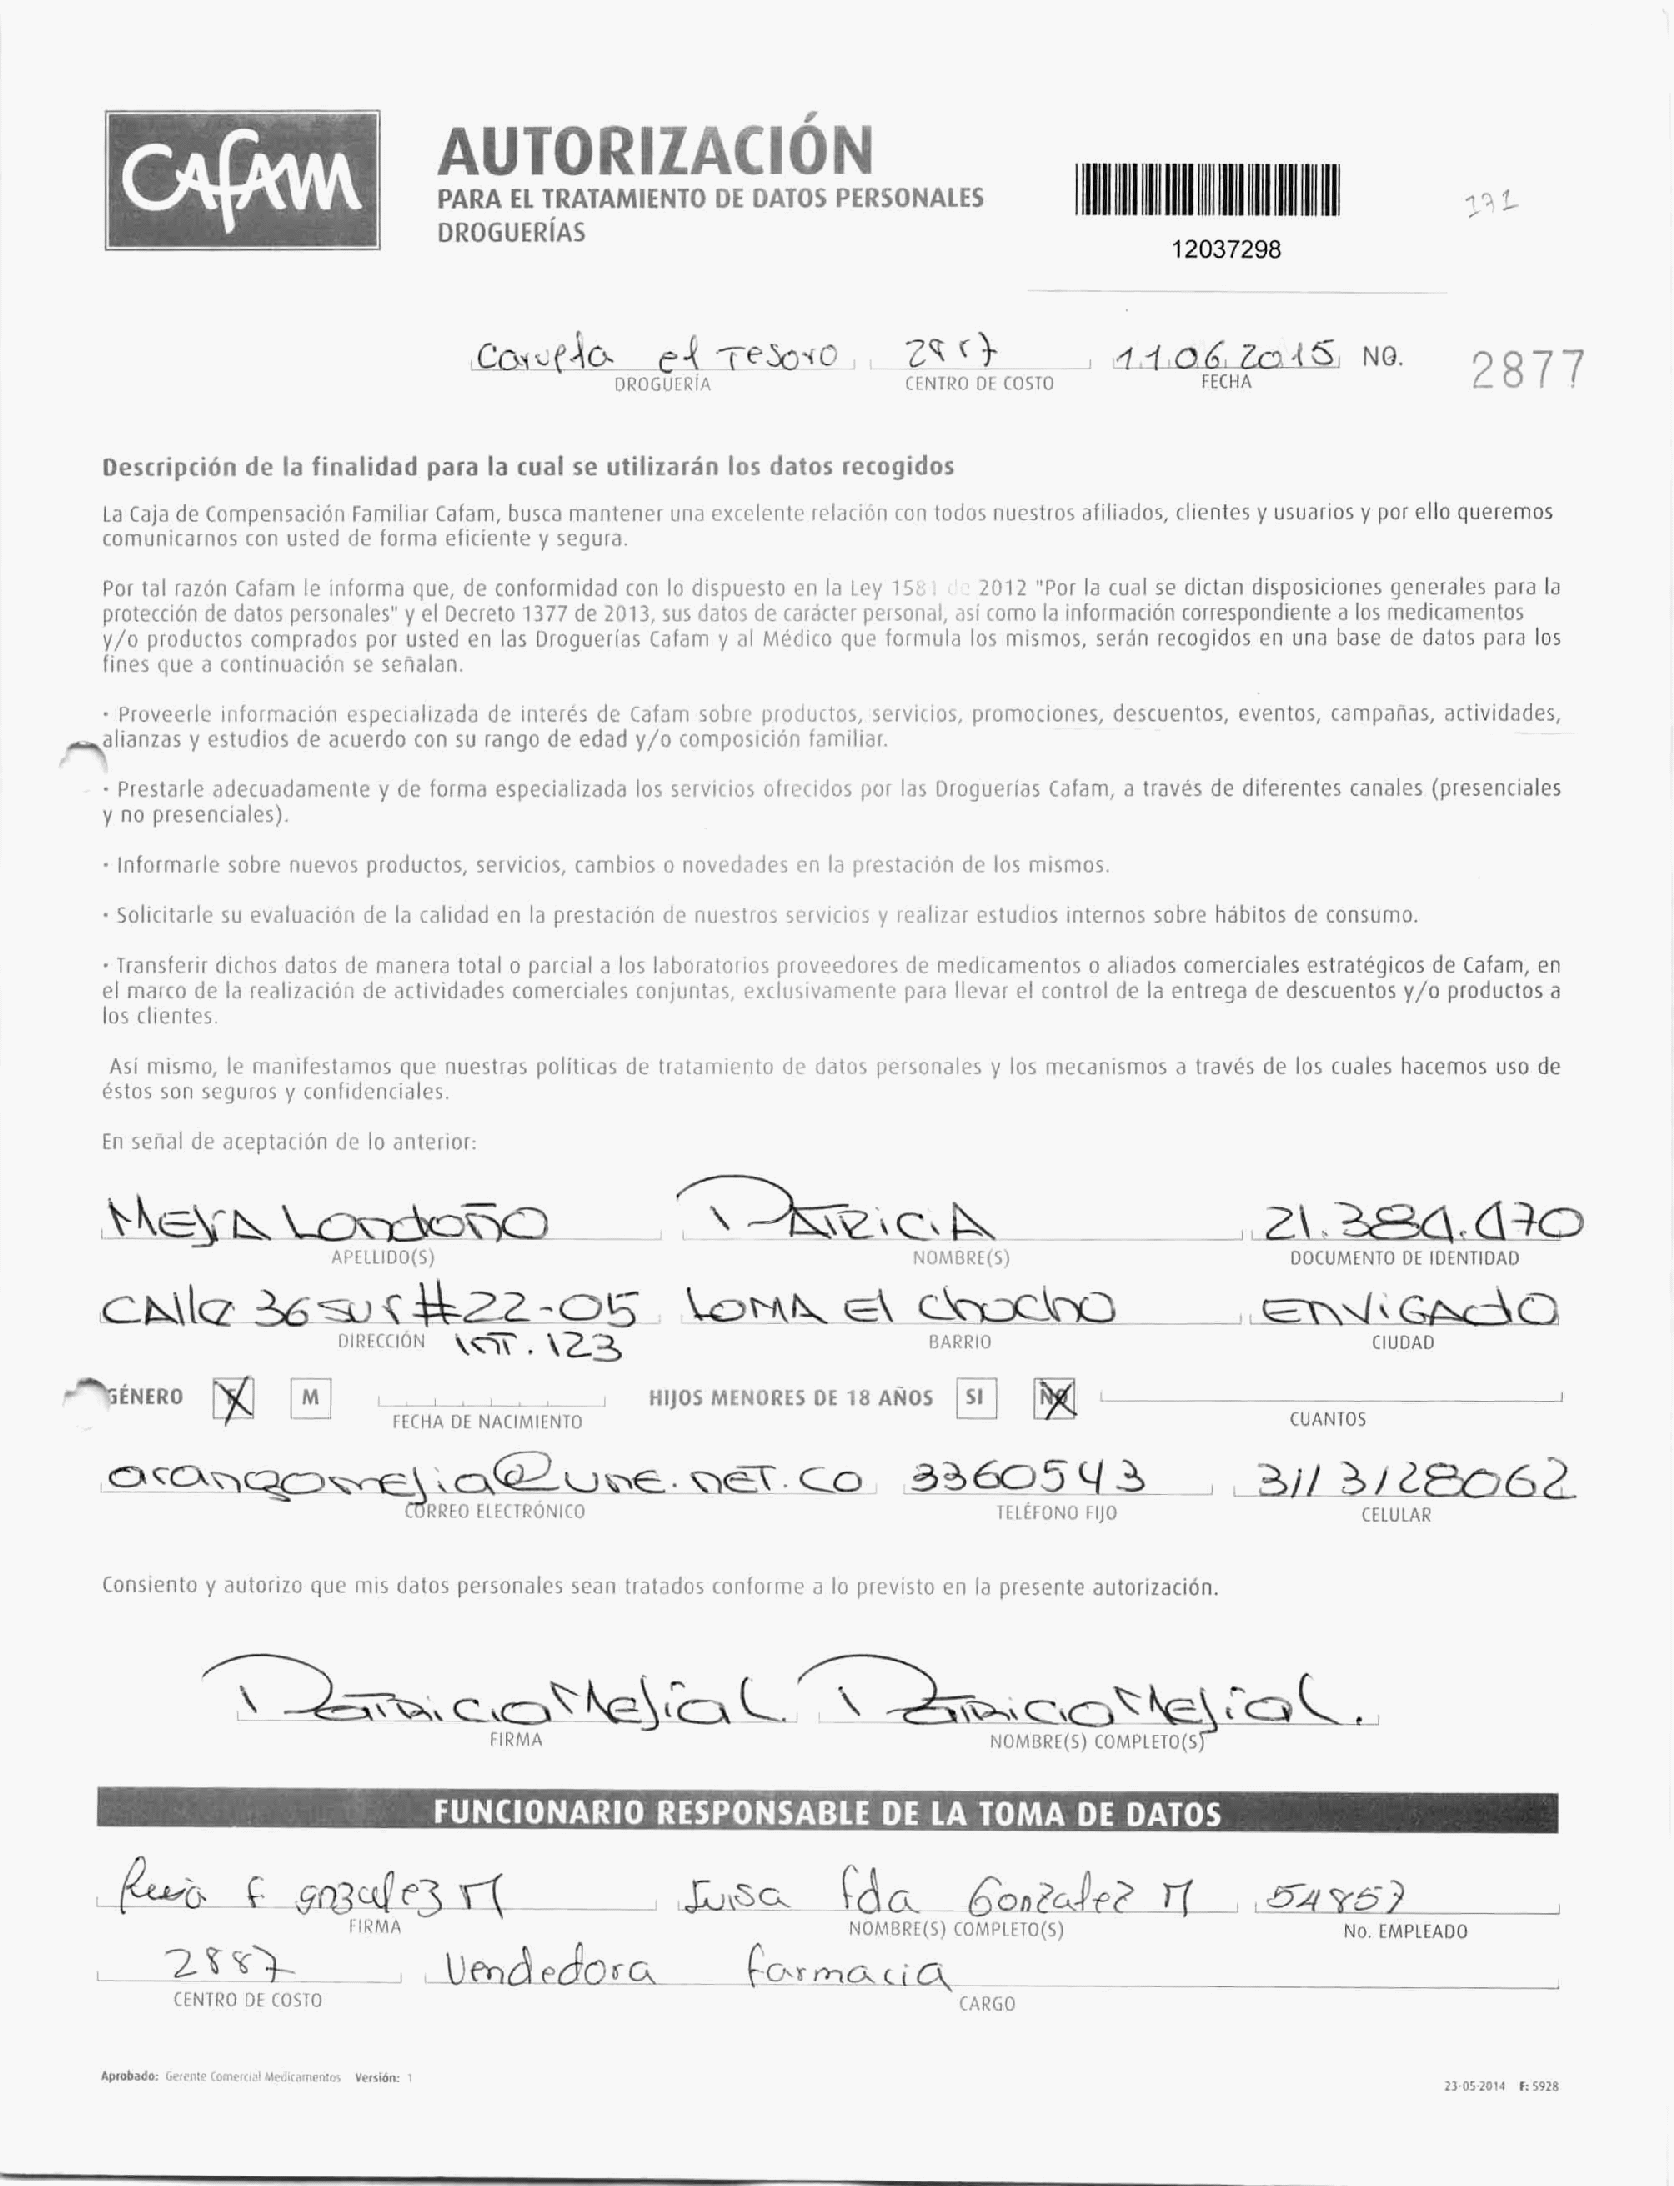 CAFAM
AUTORIZACIÓN
PARA EL TRATAMIENTO DE DATOS PERSONALES
DROGUERÍAS
12037298
el Tesoro 11.06.2015 NO. 2877
DROGUERÍA CENTRO DE COSTO FECHA
Descripción de la finalidad para la cual se utilizarán los datos recogidos
La Caja de Compensación Familiar Cafam, busca mantener una excelente relación con todos nuestros afiliados, clientes y usuarios y por ello queremos
comunicarnos con usted de forma eficiente y segura.
Por tal razón Cafam le informa que, de conformidad con lo dispuesto en la Ley 1581 de 2012 "Por la cual se dictan disposiciones generales para la
protección de datos personales" y el Decreto 1377 de 2013, sus datos de carácter personal, así como la información correspondiente a los medicamentos
y/o productos comprados por usted en las Droguerías Cafam y al Médico que formula los mismos, serán recogidos en una base de datos para los
fines que a continuación se señalan.
· Proveerle información especializada de interés de Cafam sobre productos, servicios, promociones, descuentos, eventos, campañas, actividades,
alianzas y estudios de acuerdo con su rango de edad y/o composición familiar.
· Prestarle adecuadamente y de forma especializada los servicios ofrecidos por las Droguerías Cafam, a través de diferentes canales (presenciales
y no presenciales).
· Informarle sobre nuevos productos, servicios, cambios o novedades en la prestación de los mismos.
· Solicitarle su evaluación de la calidad en la prestación de nuestros servicios y realizar estudios internos sobre hábitos de consumo.
· Transferir dichos datos de manera total o parcial a los laboratorios proveedores de medicamentos o aliados comerciales estratégicos de Cafam, en
el marco de la realización de actividades comerciales conjuntas, exclusivamente para llevar el control de la entrega de descuentos y/o productos a
los clientes.
Así mismo, le manifestamos que nuestras políticas de tratamiento de datos personales y los mecanismos a través de los cuales hacemos uso de
éstos son seguros y confidenciales.
En señal de aceptación de lo anterior:
MEJÍA LONDOÑO PATRICIA
APELLIDO(S) NOMBRE(S) DOCUMENTO DE IDENTIDAD
CAlle 36 sur #22-05 LOMA El chocho ENVIGADO
DIRECCIÓN INT. 123 BARRIO CIUDAD
GÉNERO F M HIJOS MENORES DE 18 AÑOS SI NO
FECHA DE NACIMIENTO CUANTOS
arangomejia@une.net.co 3360543 3113128062
CORREO ELECTRÓNICO TELÉFONO FIJO CELULAR
Consiento y autorizo que mis datos personales sean tratados conforme a lo previsto en la presente autorización.
Patricia Mejía L. Patricia Mejía L.
FIRMA NOMBRE(S) COMPLETO(S)
FUNCIONARIO RESPONSABLE DE LA TOMA DE DATOS
Luisa f gonzalez M Luisa fda Gonzalez M 54857
FIRMA NOMBRE(S) COMPLETO(S) No. EMPLEADO
2887 Vendedora farmacia
CENTRO DE COSTO CARGO
Aprobado: Gerente Comercial Medicamentos Versión: 1
23-05-2014 F: 5928